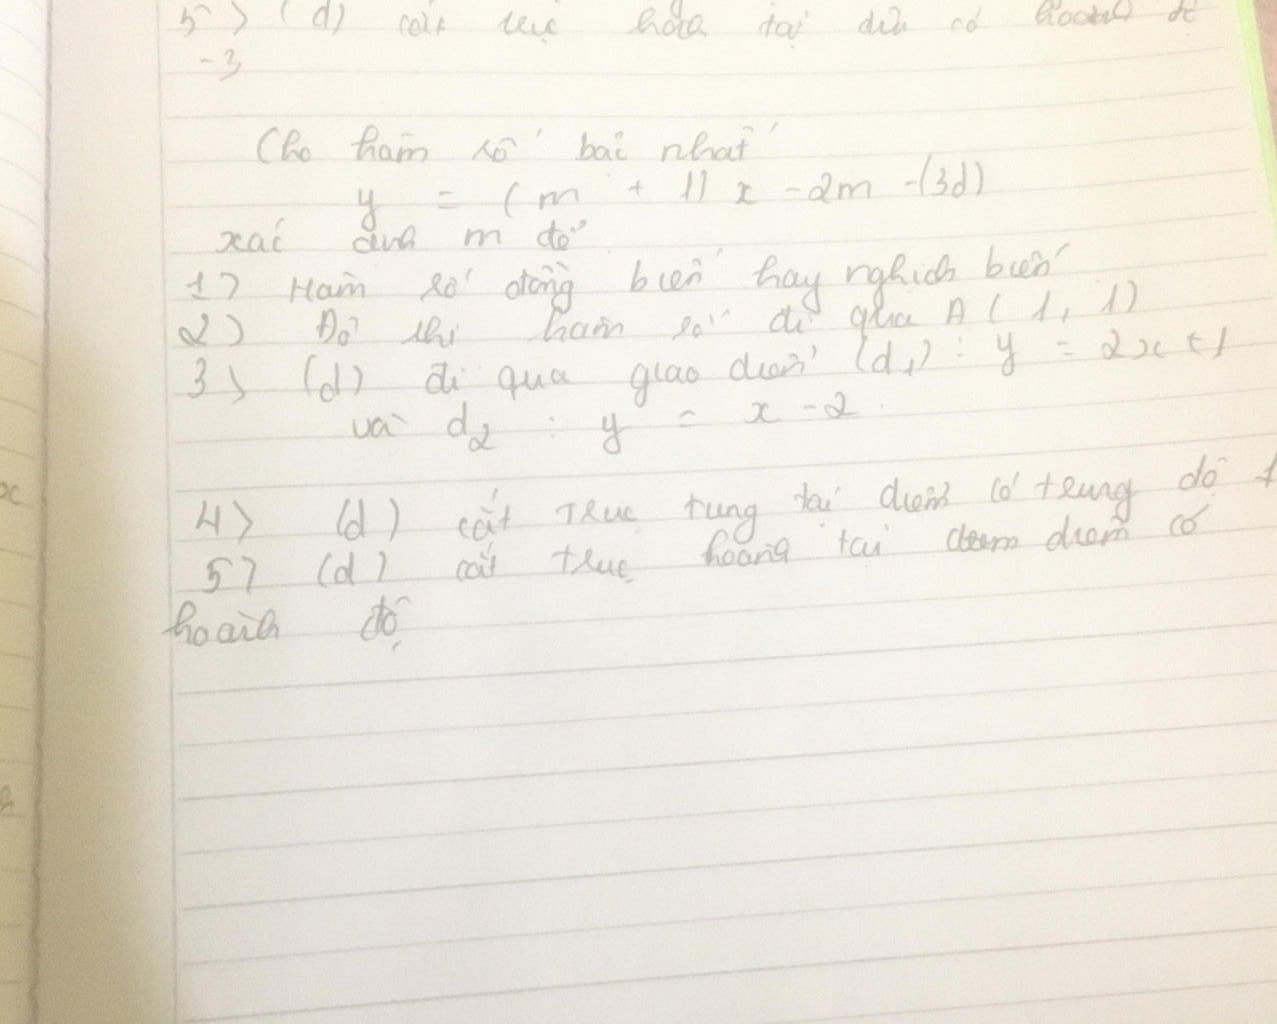 5) (d) cắt trục hoà tại điể có hoành đ
-3
Cho hàm số bậc nhất
y = (m + 1) x - 2m - (3d)
xác định m để
1) Hàm số đồng biến hay nghịch biến
2) Đồ thị hàm số đi qua A (1, 1)
3) (d) đi qua giao điểm (d1) : y = 2x + 1
và d2 : y = x - 2
4) (d) cắt trục tung tại điểm có trung độ 1
5) (d) cắt trục hoàng tại điểm có
hoành độ